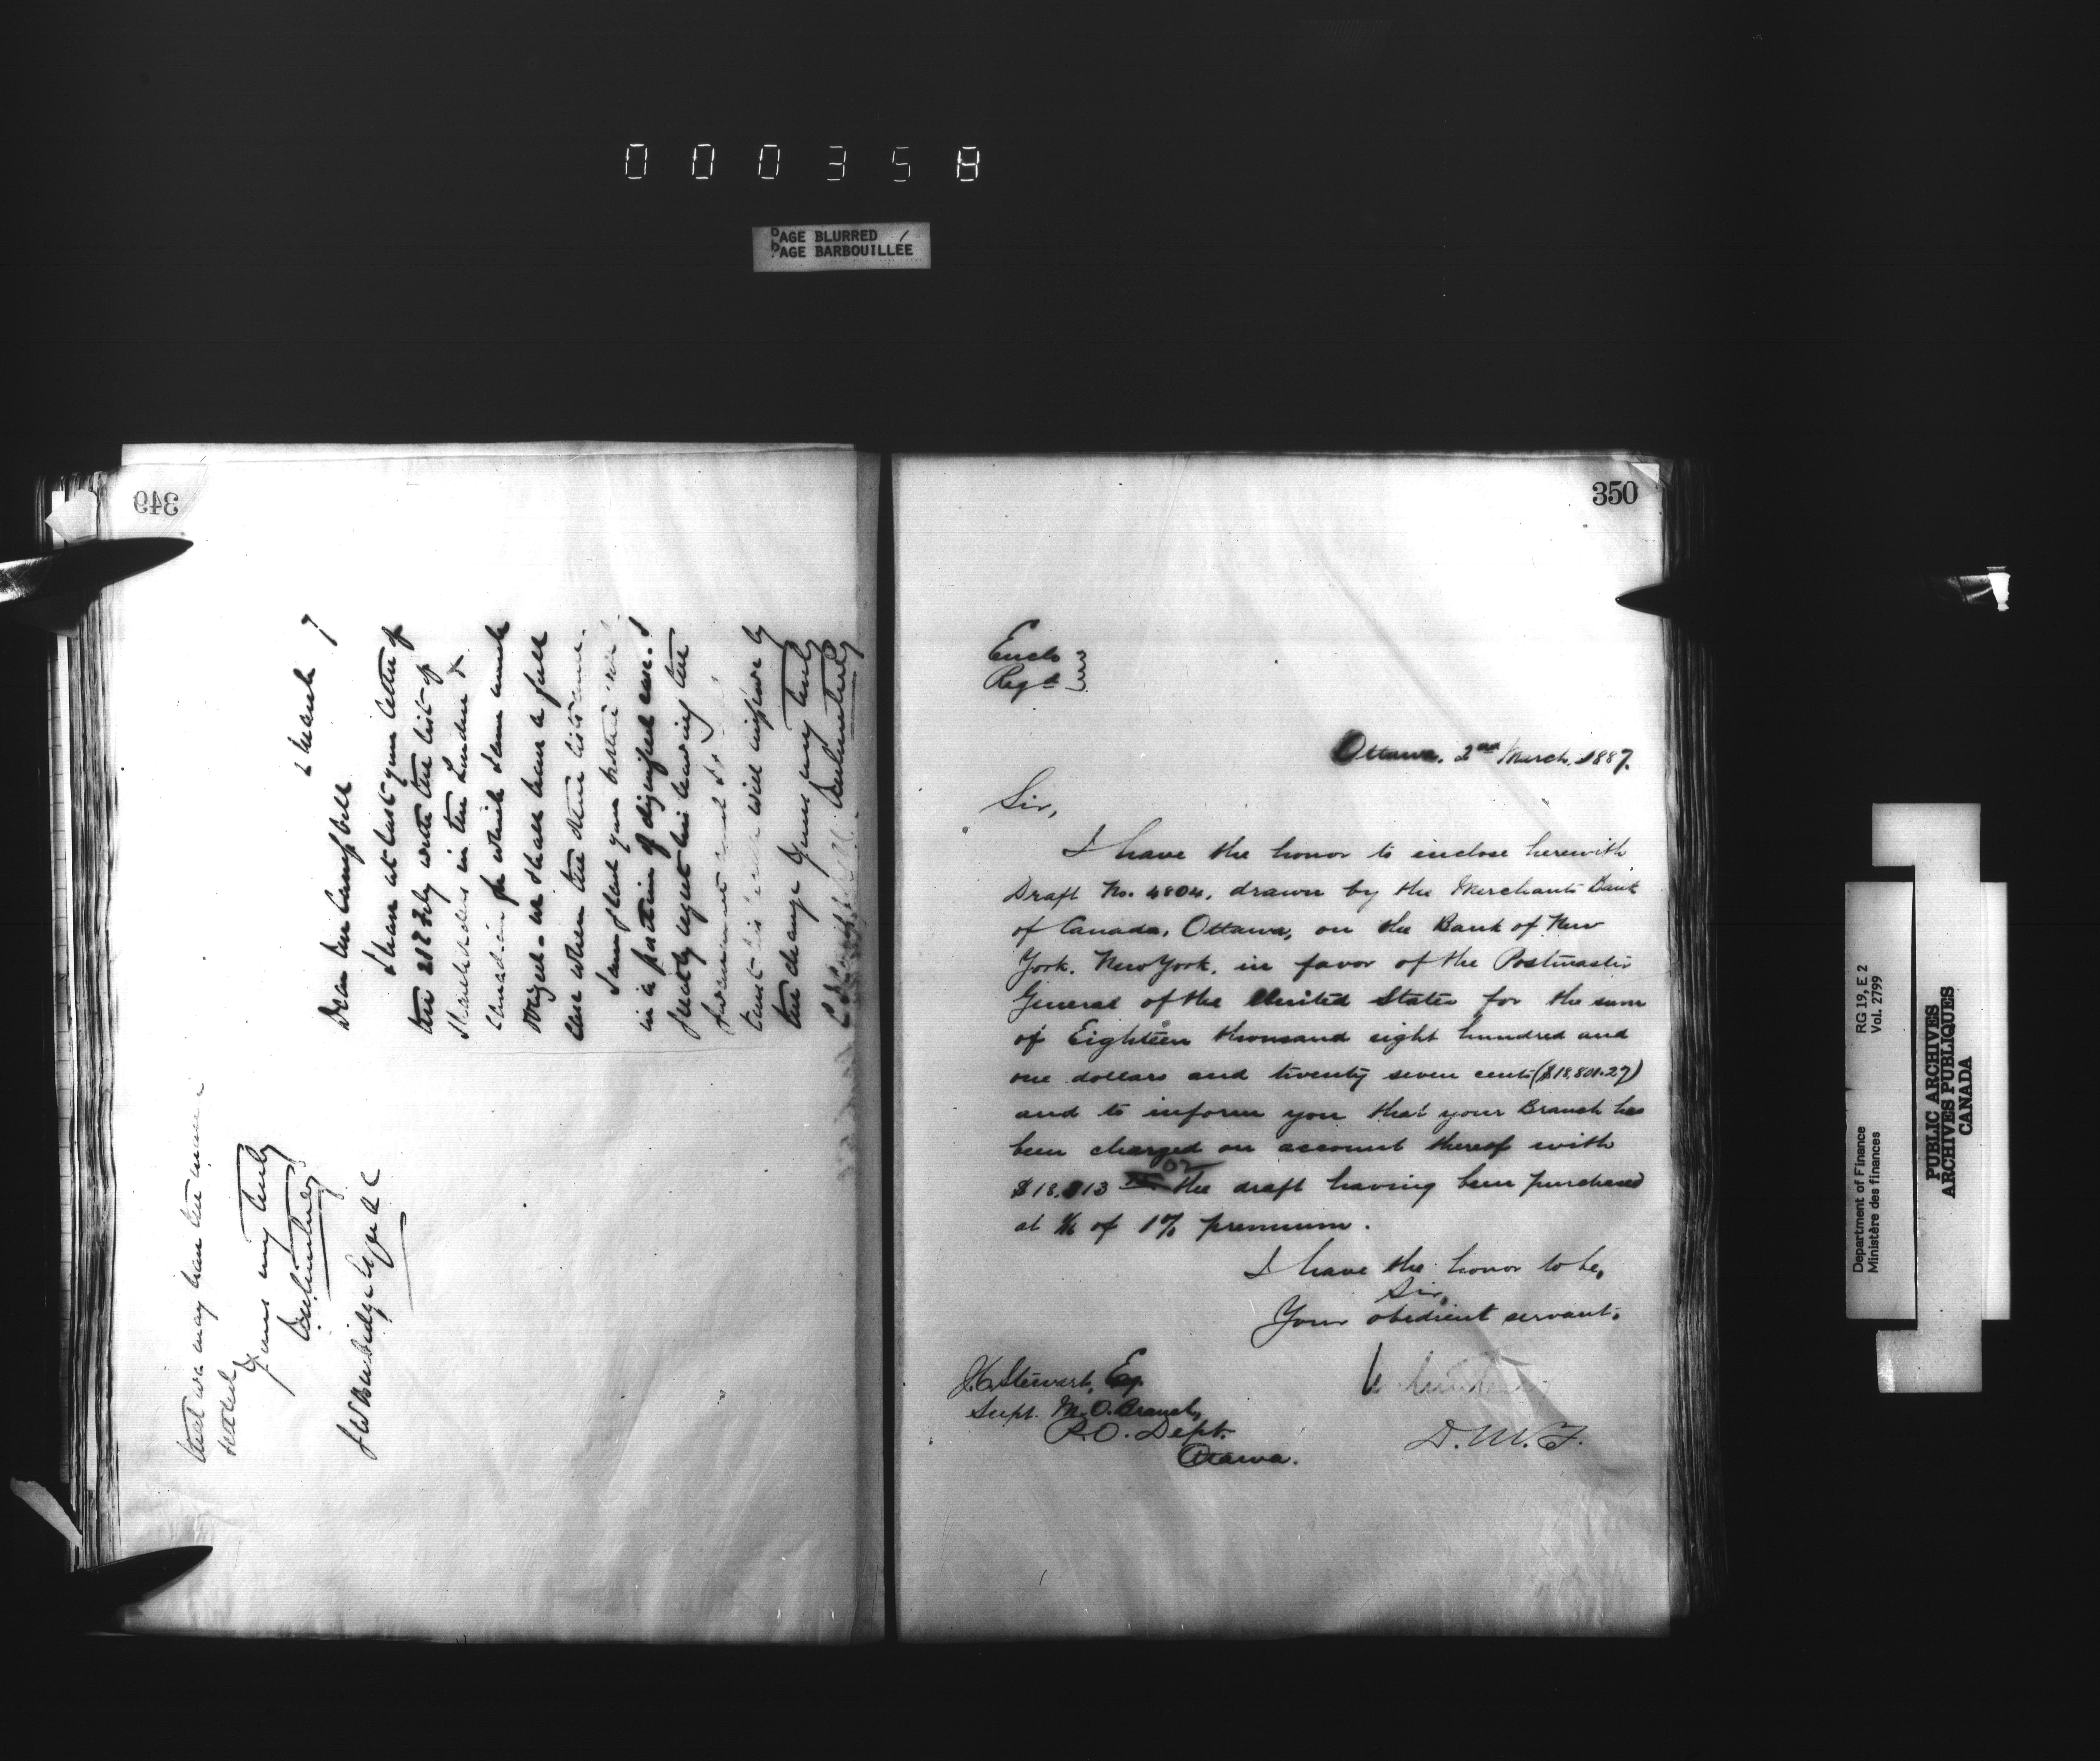 000358
PAGE BLURRED
PAGE BARBOUILLÉE
349
2 March 7
Dear Mr Campbell
I have at last your letter of
the 21st Feby with the list of
Shareholders in the London &
Canadian for which I am much
obliged - we shall have a full
case when the other lists come.
I am glad your
in a position of dignified ease. I
greatly regret his leaving the
Government
trust his
the change Yours very truly
that we may have the
settled
Yours very truly
J W Burbidge Esq Q C
350
Encls
Regd
Ottawa, 2nd March, 1887.
Sir,
I have the honor to inclose herewith
Draft No. 4804, drawn by the Merchants Bank
of Canada, Ottawa, on the Bank of New
York, New York, in favor of the Postmaster
General of the United States for the sum
of Eighteen thousand eight hundred and
one dollars and twenty seven cents ($18,801.27)
and to inform you that your Branch has
been charged on account thereof with
$18,813 02 the draft having been purchased
at 1/16 of 1% premium.
I have the honor to be,
Sir,
Your obedient servant,
D.M.F.
J.C. Stewart, Esq.
Supt. M.O. Branch,
P.O. Dept.
Ottawa.
Department of Finance
Ministère des finances
RG 19, E 2
Vol. 2799
PUBLIC ARCHIVES
ARCHIVES PUBLIQUES
CANADA